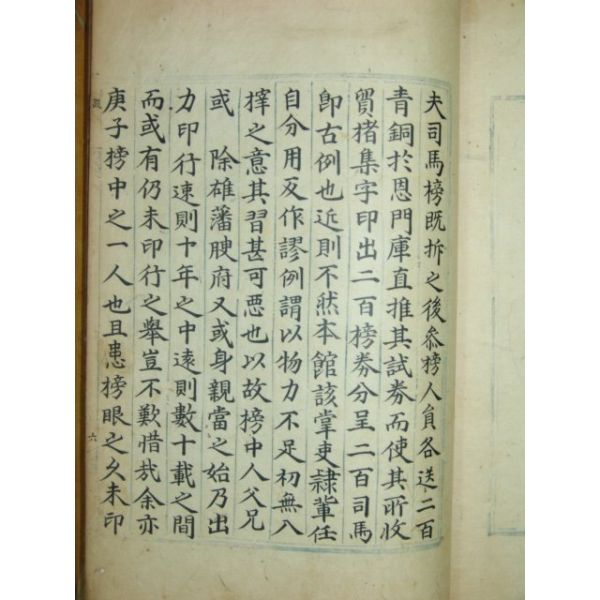 夫司馬榜旣拆之後叅榜人員各送二百
青銅於恩門庫直推其試券而使其所收
貿楮集字印出二百榜券分呈二百司馬
卽古例也近則不然本館該掌吏隷軰任
自分用反作謬例謂以物力不足初無入
擇之意其習甚可惡也以故榜中人父兄
或 除雄藩腴府又或身親當之始乃出
力印行速則十年之中遠則數十載之間
而或有仍未印行之擧豈不歎惜㢤余亦
庚子榜中之一人也且恚榜眼之久未印
六